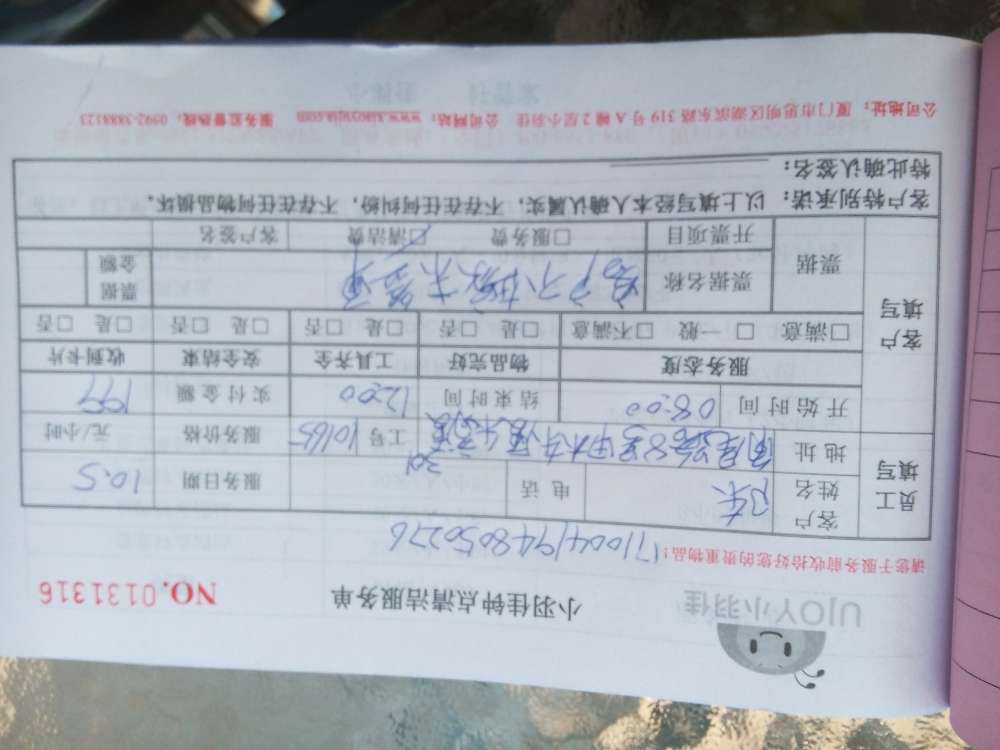 UJOY小羽佳
小羽佳钟点清洁服务单
NO.0131316
请您于服务前收拾好您的贵重物品!
171004194805027б
员工填写
客户姓名
陈
电话
服务日期
10.5
地址
301
工号
10165
服务价格
元/小时
开始时间
08:00
结束时间
12:00
实付金额
199
客户填写
服务态度 物品完好 工具齐全 安全结束 收到卡片
□满意 □一般 □不满意 □是 □否 □是 □否 □是 □否 □是 □否
票据
票据名称
客户不在家未签单
票据金额
开票项目
□服务费 □清洁费
客户签名
客户特别承诺:以上填写经本人确认属实,不存在任何纠纷,不存在任何物品损坏。
特此确认签名:
公司地址:厦门市思明区湖滨东路319号A幢2层小羽佳 公司网站:www.xiaoyujia.com 服务监督热线:0592-3888123